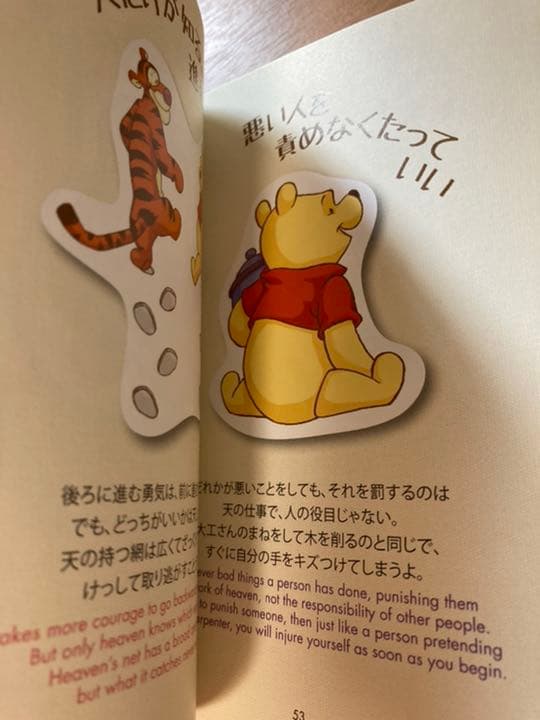 が知る
後ろに進む勇気は、前に
でも、どっちがいいかは
天の持つ網は広くてざっ
けっして取り逃がすこ
akes more courage to go
But only heaven knows which
Heaven's net has a
but what it catches
悪い人を
責めなくたって
いい
れかが悪いことをしても、それを罰するのは
天の仕事で、人の役目じゃない。
大工さんのまねをして木を削るのと同じで、
すぐに自分の手をキズつけてしまうよ。
ever bad things a person has done, punishing them
ork of heaven, not the responsibility of other people.
to punish someone, then just like a person pretending
arpenter, you will injure yourself as soon as you begin.
53